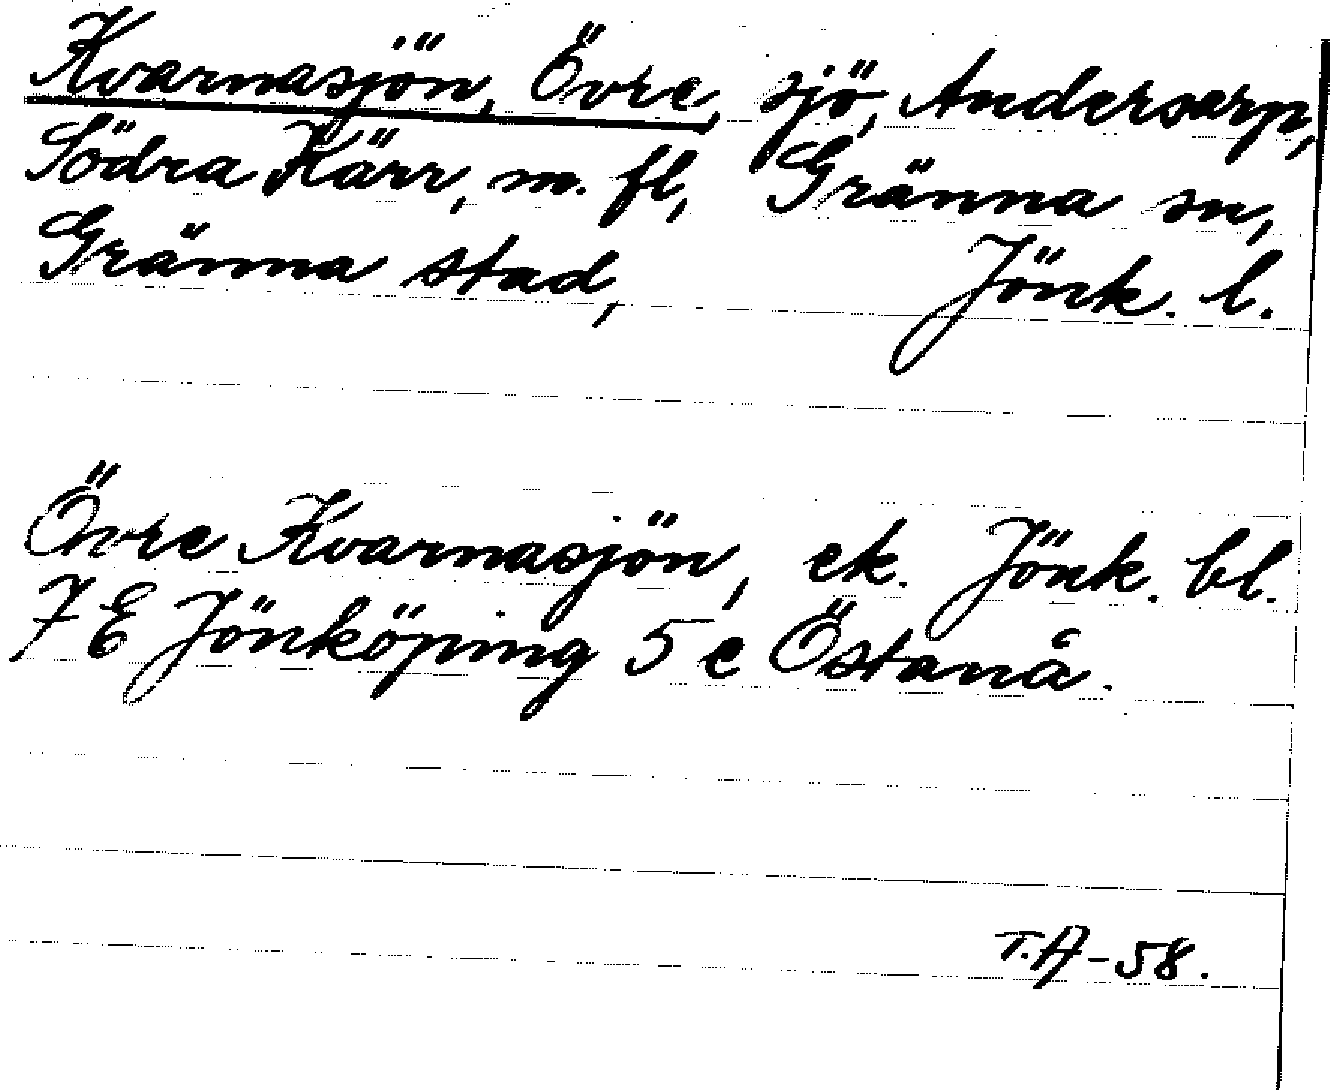 Kvarnasjön, Övre, sjö, Andersarp,
Södra Kärr, m. fl, Gränna sn,
Gränna stad, Jönk. l.
Övre Kvarnasjön, ek. Jönk. bl.
7 E Jönköping 5 e Östanå.
T.A-58.